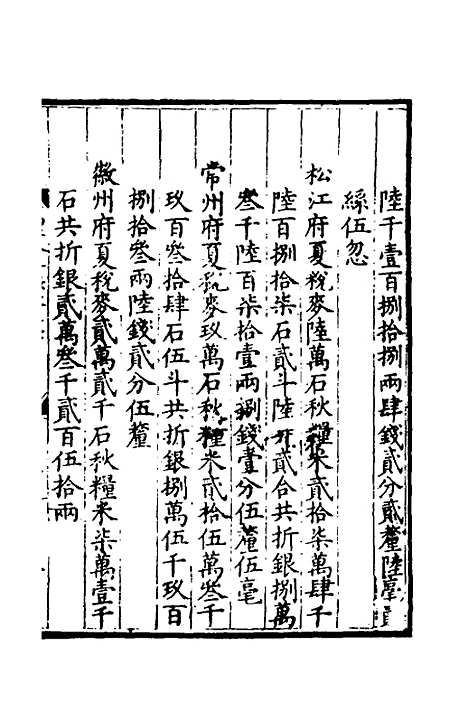 陸千壹百捌拾捌兩肆錢貳分貳釐陸毫壹
絲伍忽
松江府夏稅麥陸萬石秋糧米貳拾柒萬肆千
陸百捌拾柒石貳斗陸升貳合共折銀捌萬
叁千陸百柒拾壹兩捌錢壹分伍釐伍毫
常州府夏稅麥玖萬石秋糧米貳拾伍萬叁千
玖百叁拾肆石伍斗共折銀捌萬伍千玖百
捌拾叁兩陸錢貳分伍釐
徽州府夏稅麥貳萬貳千石秋糧米柒萬壹千
石共折銀貳萬叁千貳百伍拾兩